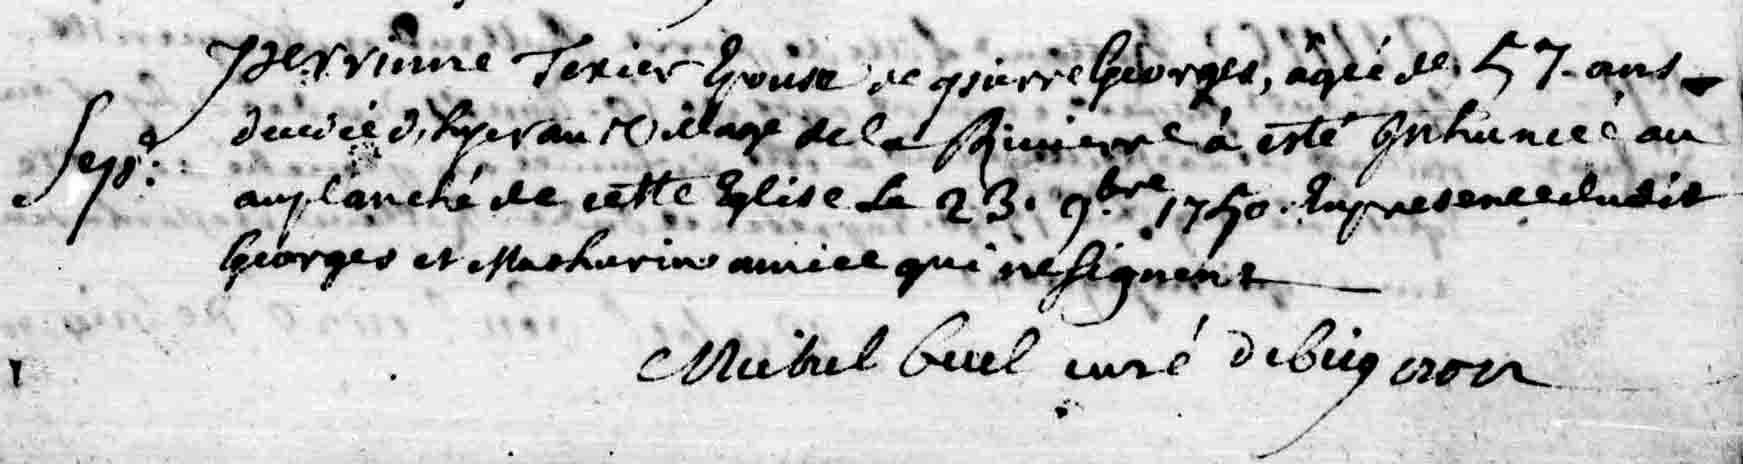 Perrinne Texier Epouse de pierre Georges, âgée de 57. ans
Sep.e decedée d'hyer au Village de la Riuierre à esté Inhumée au
anplanché de cette Eglise Le 23. 9.bre 1750. En presence dudit
Georges et Mathurin amice qui ne signent
Michel curé de